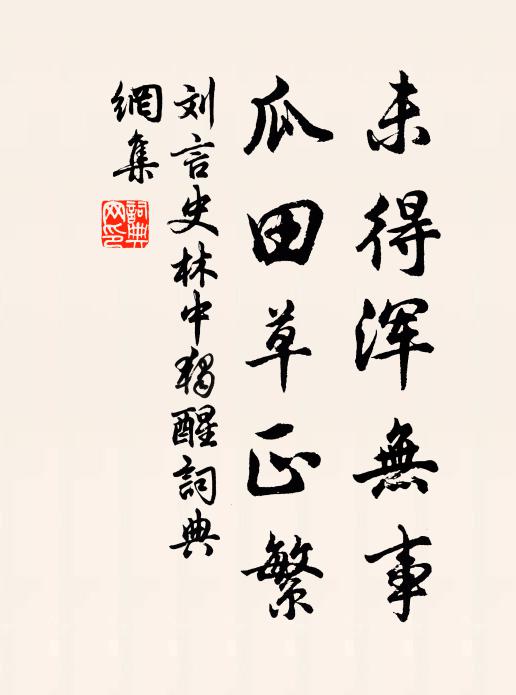 未得浑無事
瓜田草正繁
刘言史林中獨醒詞典
網集
詞典网印